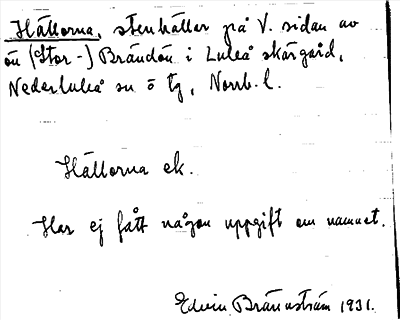 Hällorna, stenhällar på V. sidan av
ön (Stor-) Brändön i Luleå skärgård,
Nederluleå sn o tg, Norrb. l.
Hällorna ek.
Har ej fått någon uppgift om namnet.
Edvin Brännström 1931.